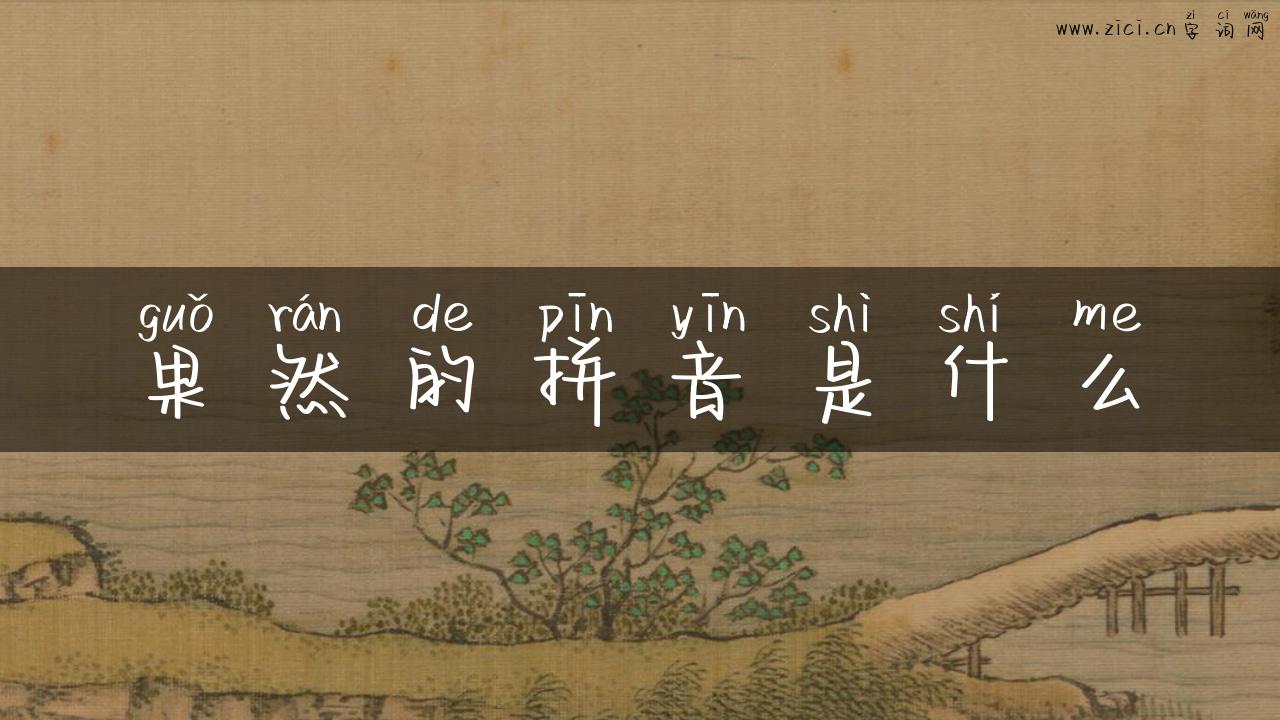 zì cí wǎng
www.zici.cn 字 词 网
guǒ rán de pīn yīn shì shí me
果 然 的 拼 音 是 什 么